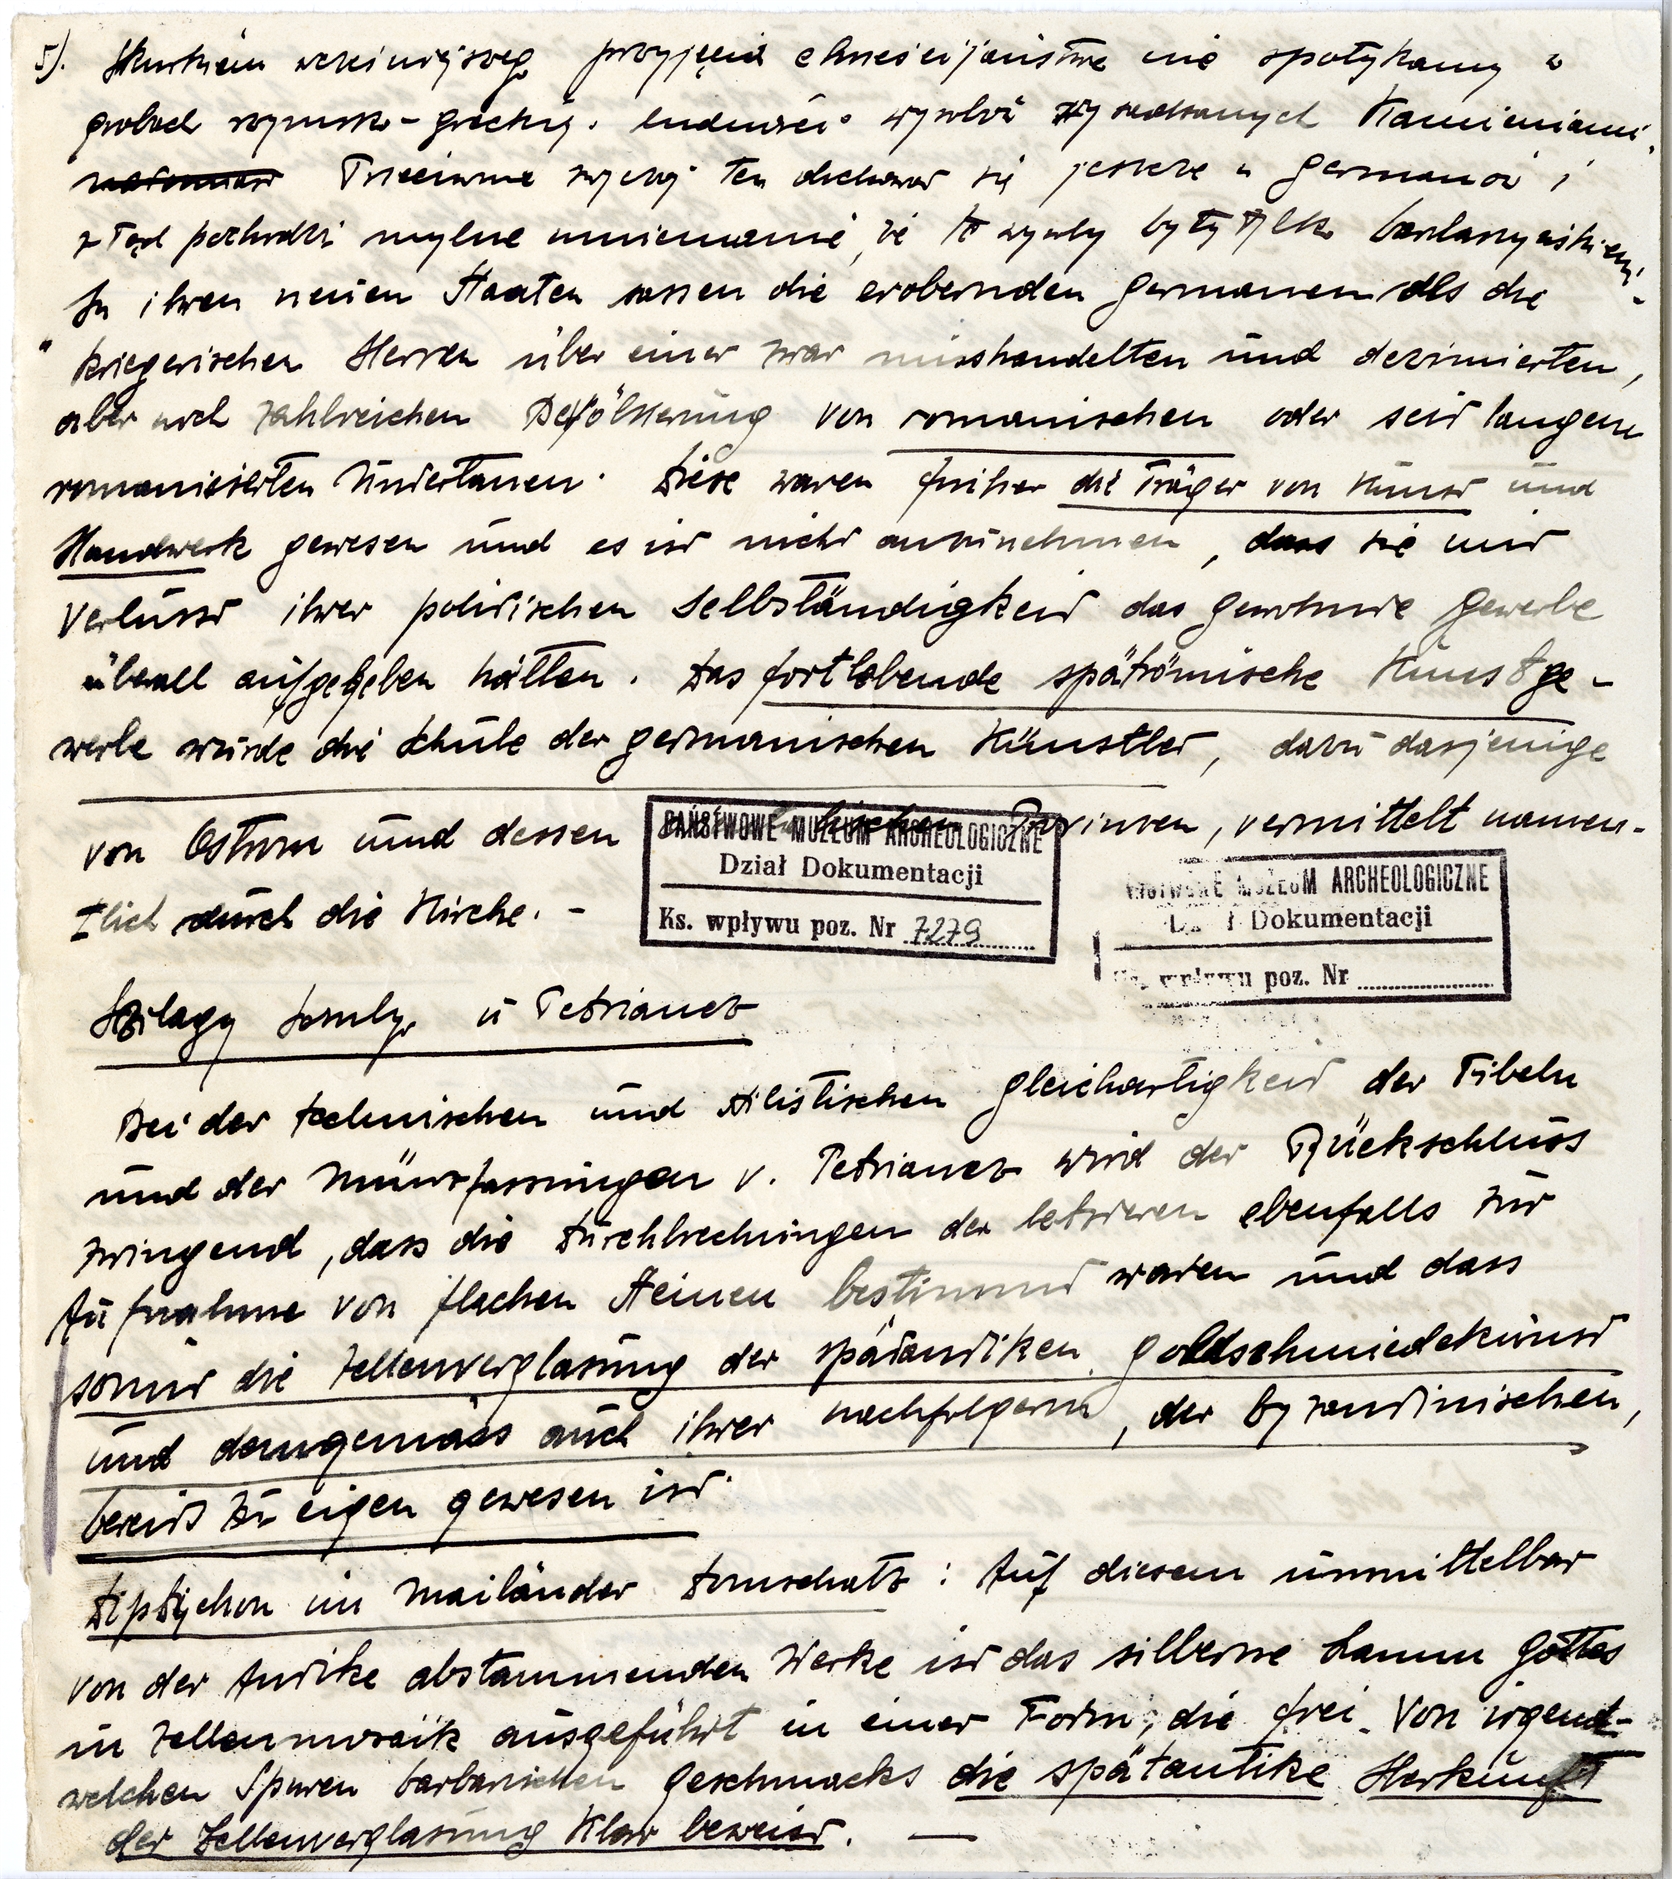 5). Skutkiem wcześniejszego przyjęcia chrześcijaństwa nie spotykamy w
grobach rzymsko-greckiej ludności wyrobów wysadzanych kamieniami.
zwyczaj ten dochował się jeszcze u Germanów i
stąd pochodzi mylne mniemanie, że te wyroby były tylko barbarzyńskiemi.
"In ihren neuen Staaten sassen die erobernden Germanen als die
kriegerischen Herren über einer zwar misshandelten und dezimierten,
aber noch zahlreichen Bevölkerung von romanischen oder seit langem
romanisierten Untertanen. Diese waren früher die Träger von Kunst und
Handwerk gewesen und es ist nicht anzunehmen, dass sie mit
Verlusst ihrer politischen Selbständigkeit das gewohnte Gewerbe
überall aufgegeben hätten. Das fortlebende spätrömische Kunstge-
werbe wurde die Schule der germanischen Künstler, dazu dasjenige
von Ostrom und dessen Provinzen, vermittelt namen-
tlich durch die Kirche. -
PAŃSTWOWE MUZEUM ARCHEOLOGICZNE
Dział Dokumentacji
Ks. wpływu poz. Nr 7279
MUZEUM ARCHEOLOGICZNE
Dokumentacji
Ks. wpływu poz. Nr
Szilagy Somlyo u Petrianec
Bei der technischen und stilistischen Gleichartigkeit der Fibeln
und der Münzfassungen v. Petrianec wird der Rückschluss
zwingend, dass die Durchbrechungen der letzteren ebenfalls zur
Aufnahme von flachen Steinen bestimmt waren und dass
somit die Zellenverglasung der spätantiken Goldschmiedekunst
und demgemäss auch ihrer Nachfolgerin, der byzantinischen,
bereits zu eigen gewesen ist.
Diptychon im Mailänder Domschatz: Auf diesem unmittelbar
von der Antike abstammenden Werke ist das silberne Lamm Gottes
in Zellenmosaik ausgeführt in einer Form, die frei von irgend-
welchen Spuren barbarischen Geschmacks die spätantike Herkunft
der Zellenverglasung klar beweist. —